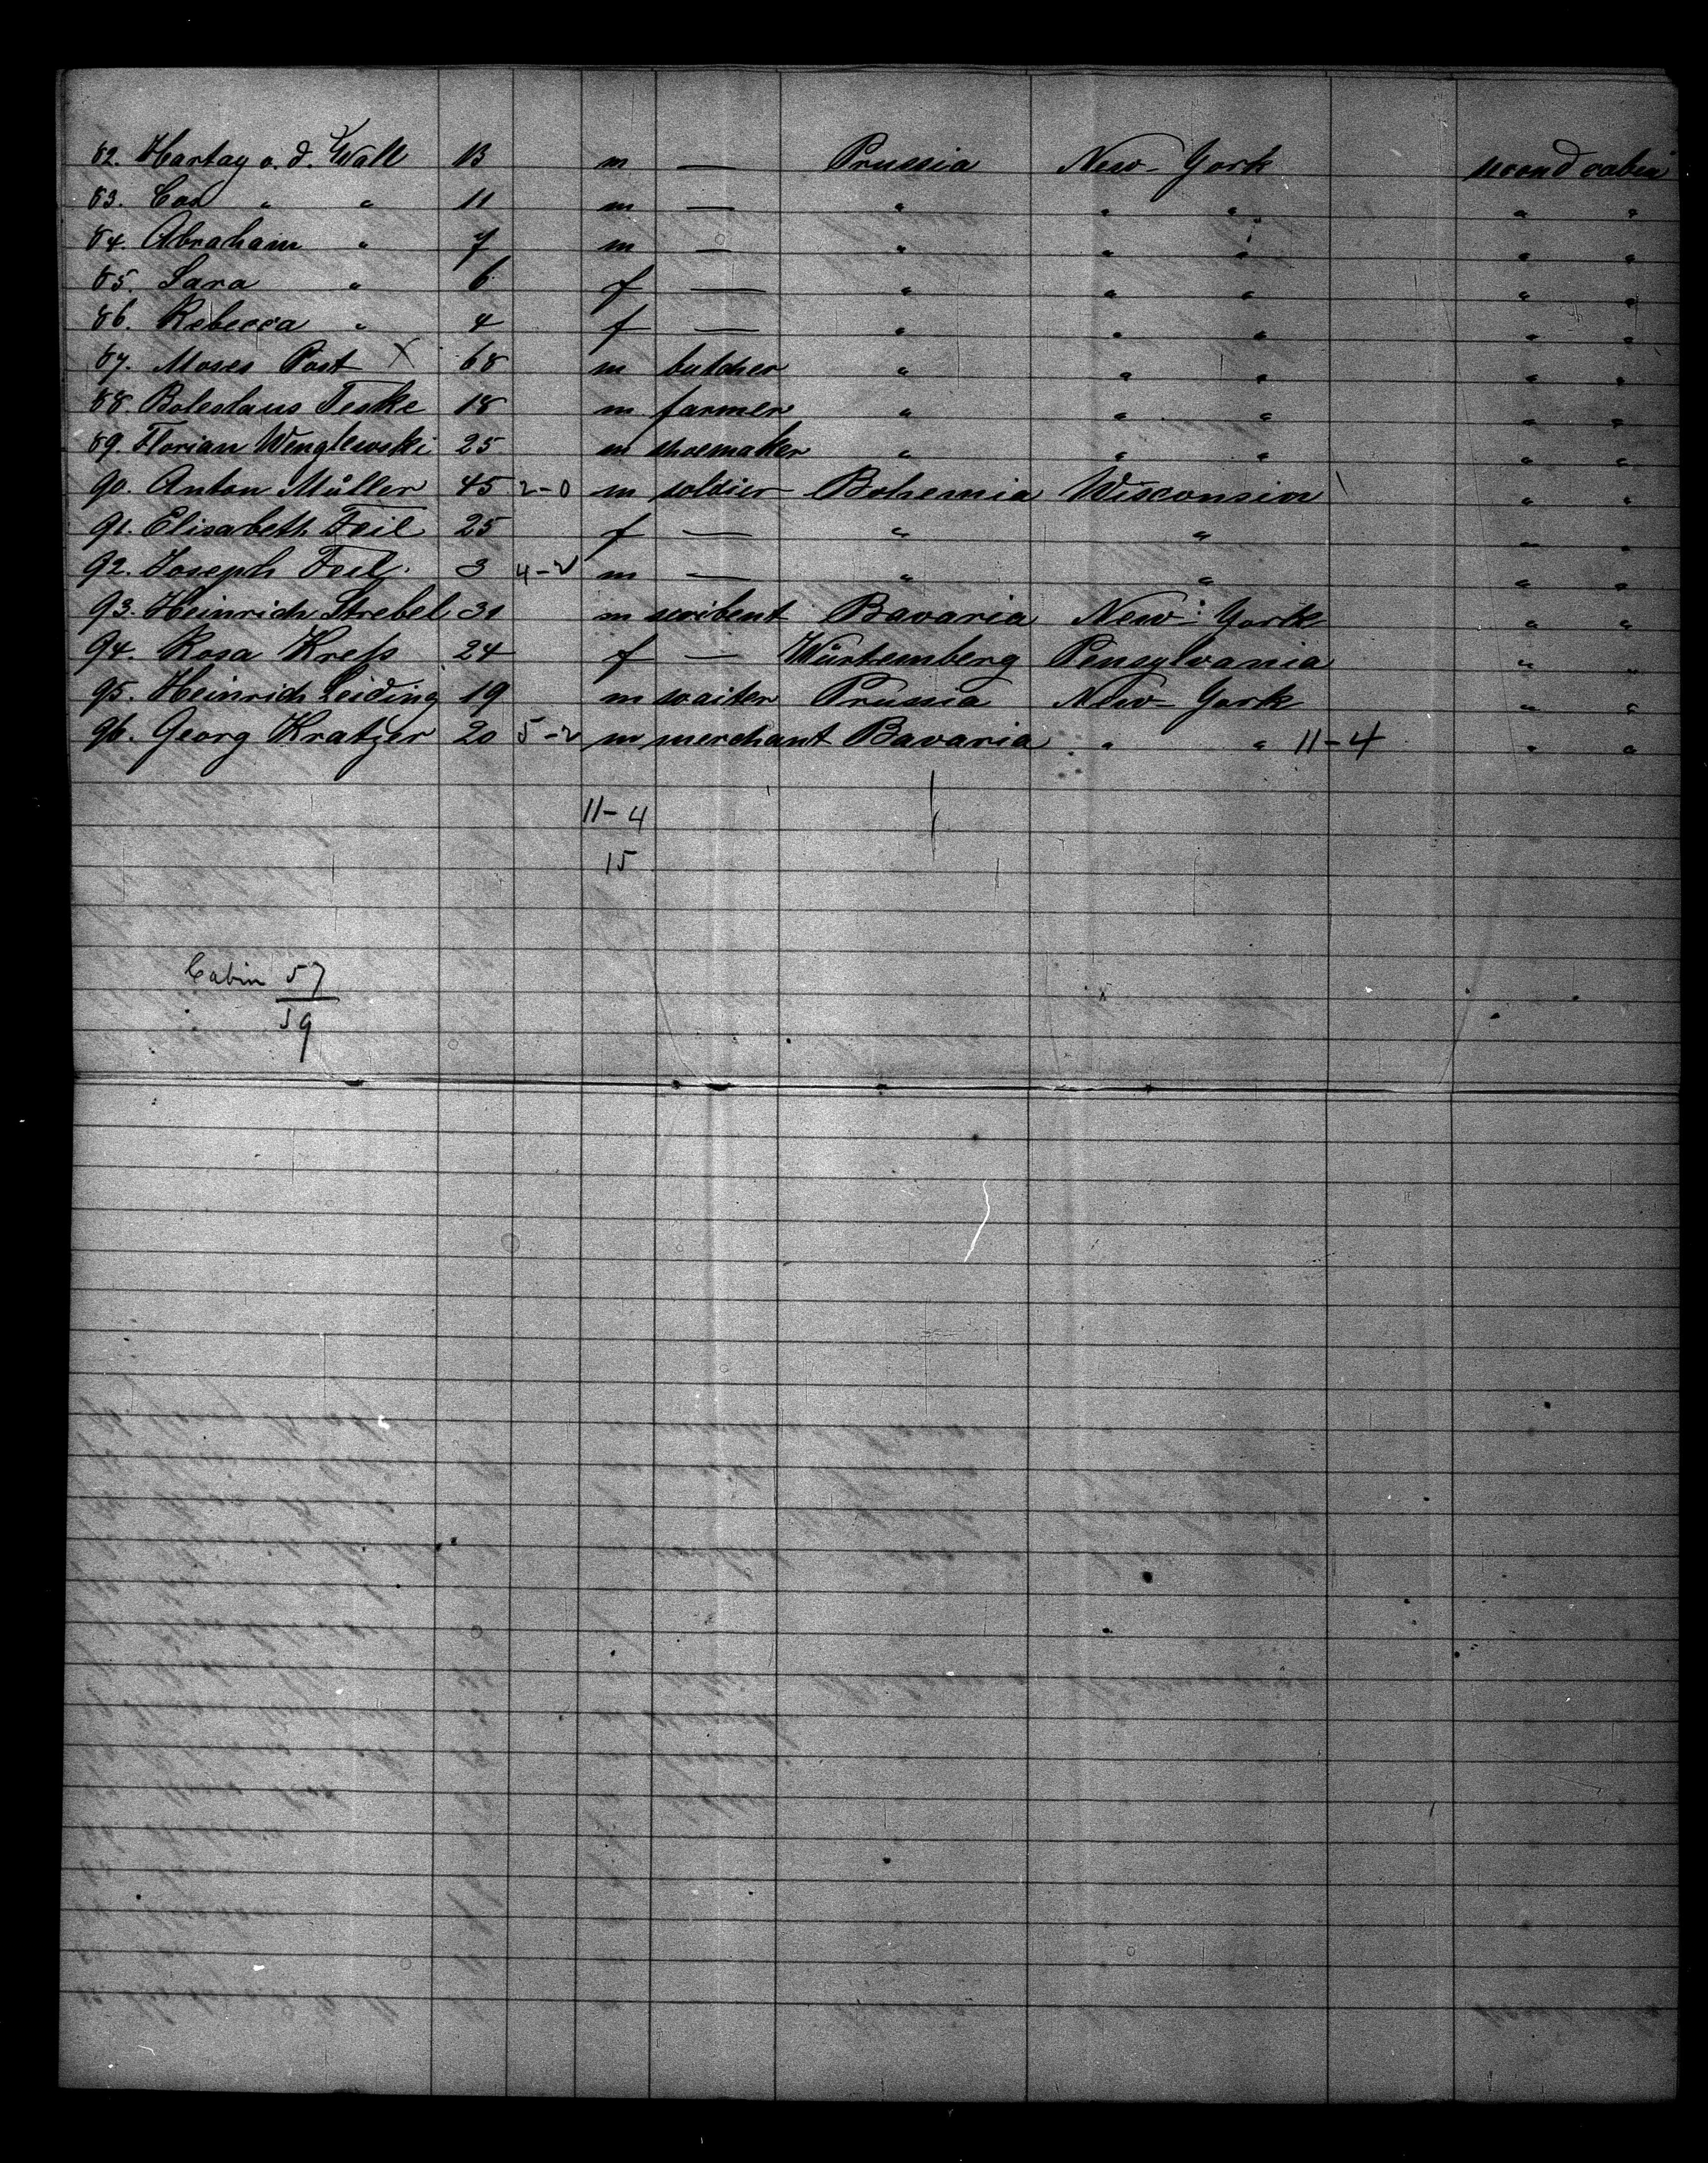 82. Hartog v. d. Wall 13 m — Prussia New-York second cabin
83. Cos " " 11 m — " " " " "
84. Abraham " 7 m — " " " " "
85. Sara " 6 f — " " " " "
86. Rebecca " 4 f — " " " " "
87. Moses Post X 68 m butcher " " " " "
88. Boleslaus Teske 18 m farmer " " " " "
89. Florian Wenglewski 25 m shoemaker " " " " "
90. Anton Müller 45 2-0 m soldier Bohemia Wisconsin " "
91. Elisabeth Feil 25 f — " " " "
92. Joseph Feil 3 4-2 m — " " " "
93. Heinrich Strebel 31 m scribent Bavaria New-York " "
94. Rosa Kreß 24 f — Würtemberg Pensylvania " "
95. Heinrich Leiding 19 m waiter Prussia New-York " "
96. Georg Kratzer 20 5-2 m merchant Bavaria " " 11-4 " "
11-4
15
Cabin 57
59